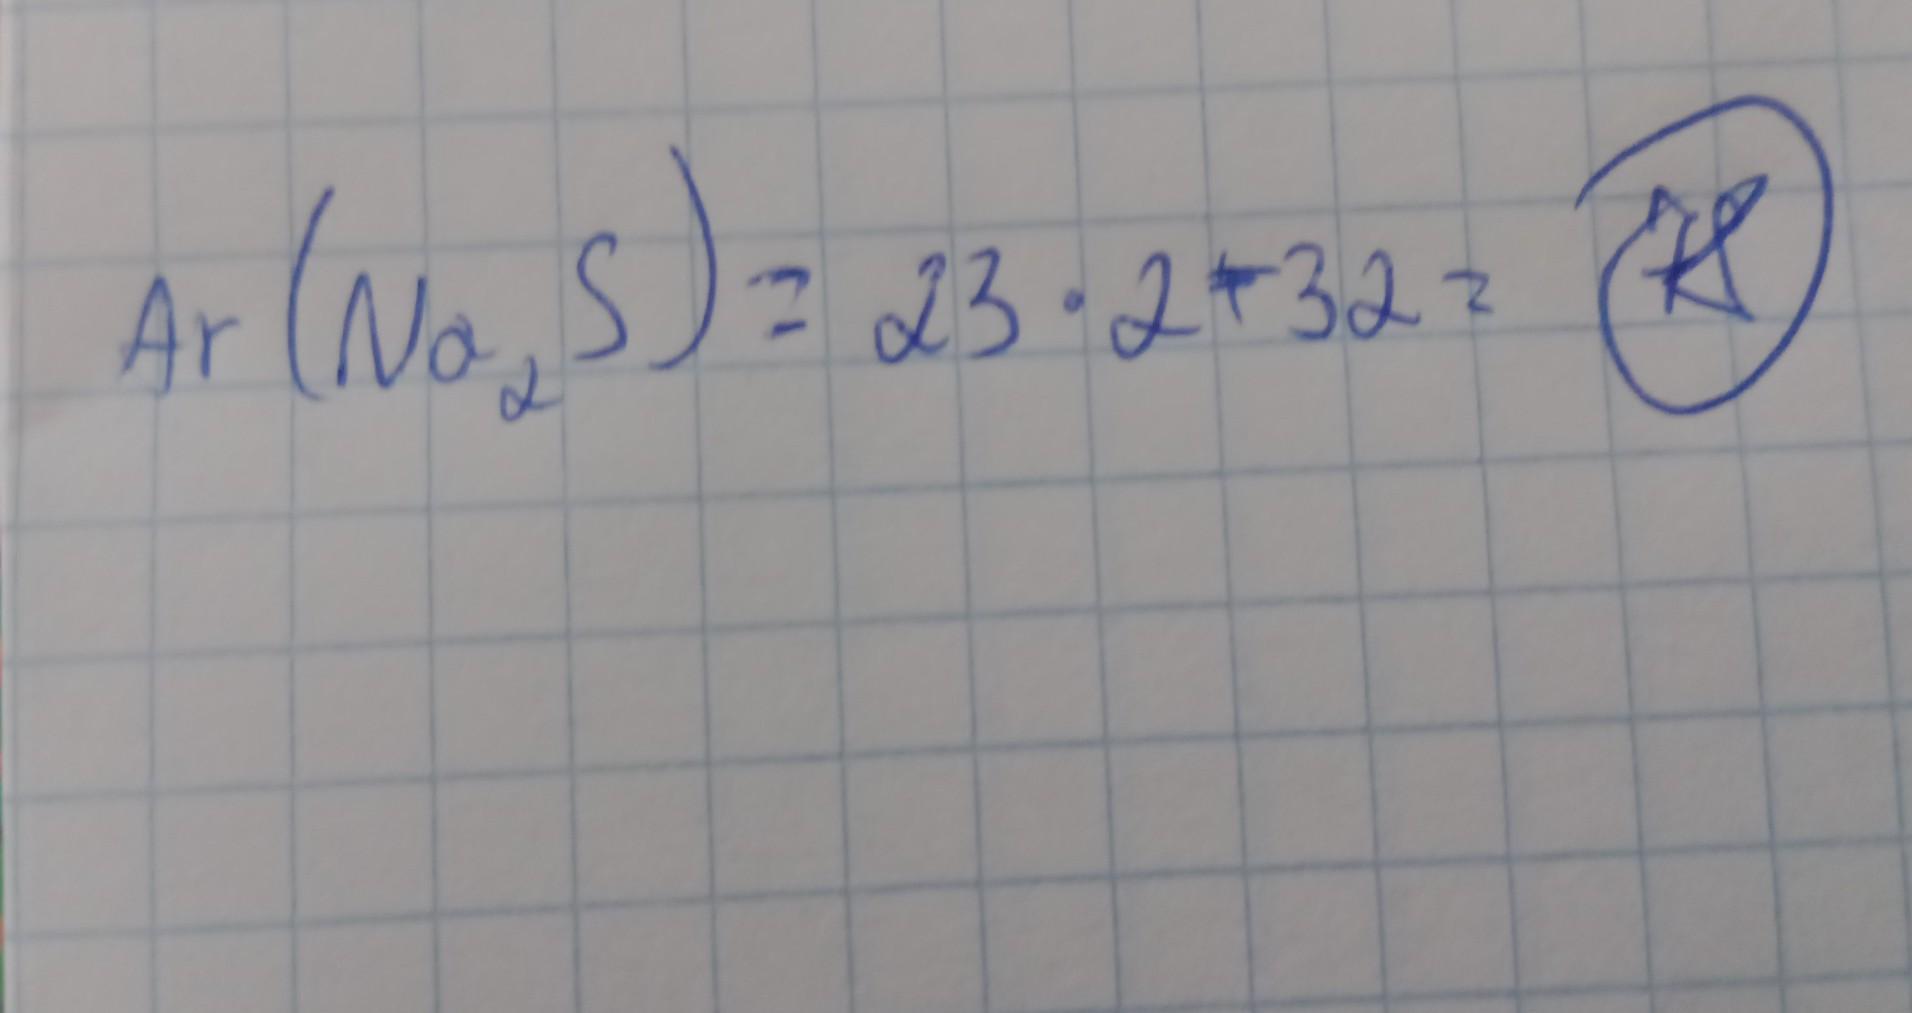 Ar(Na₂S) = 23·2+32 = 78